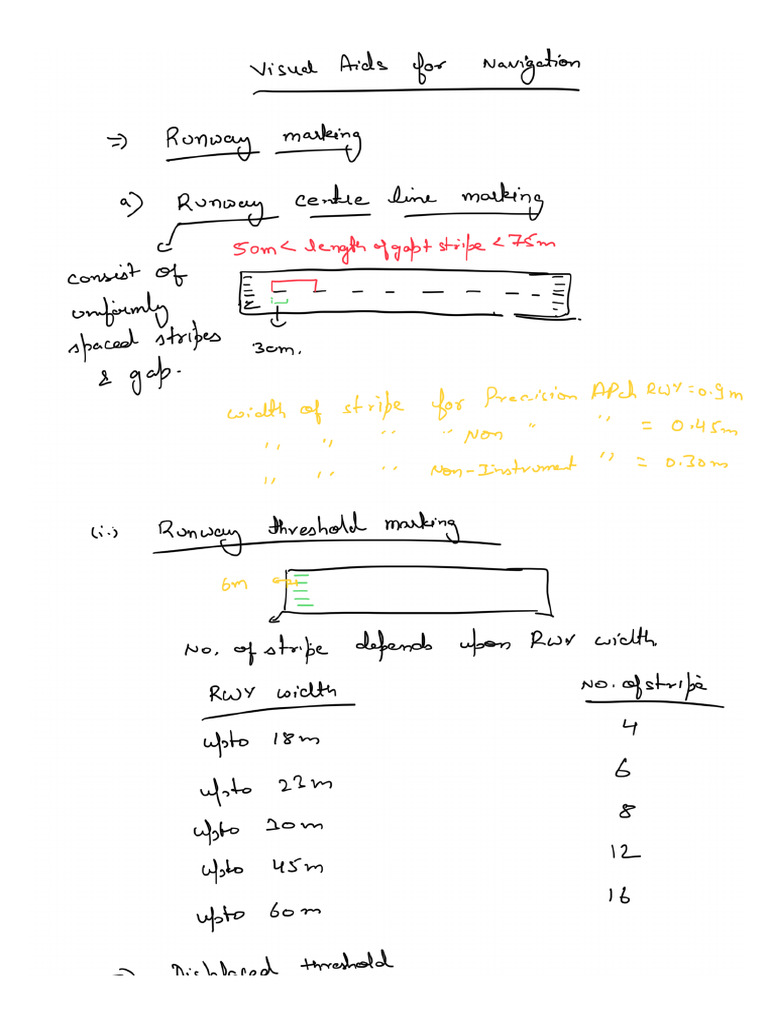 Visual Aids for Navigation
⇒ Runway marking
a) Runway centre line marking
50m < length of gap + stripe < 75m
consist of
uniformly
spaced stripes
& gap.
30m.
width of stripe for Precision APch RWY = 0.9m
,, ,, ,, ,, Non ,, ,, = 0.45m
,, ,, ,, Non-Instrument ,, = 0.30m
(i.) Runway threshold marking
6m
No. of stripe depends upon RWY width.
RWY width No. of stripe
upto 18m 4
upto 23m 6
upto 30m 8
upto 45m 12
upto 60m 16
⇒ Displaced threshold